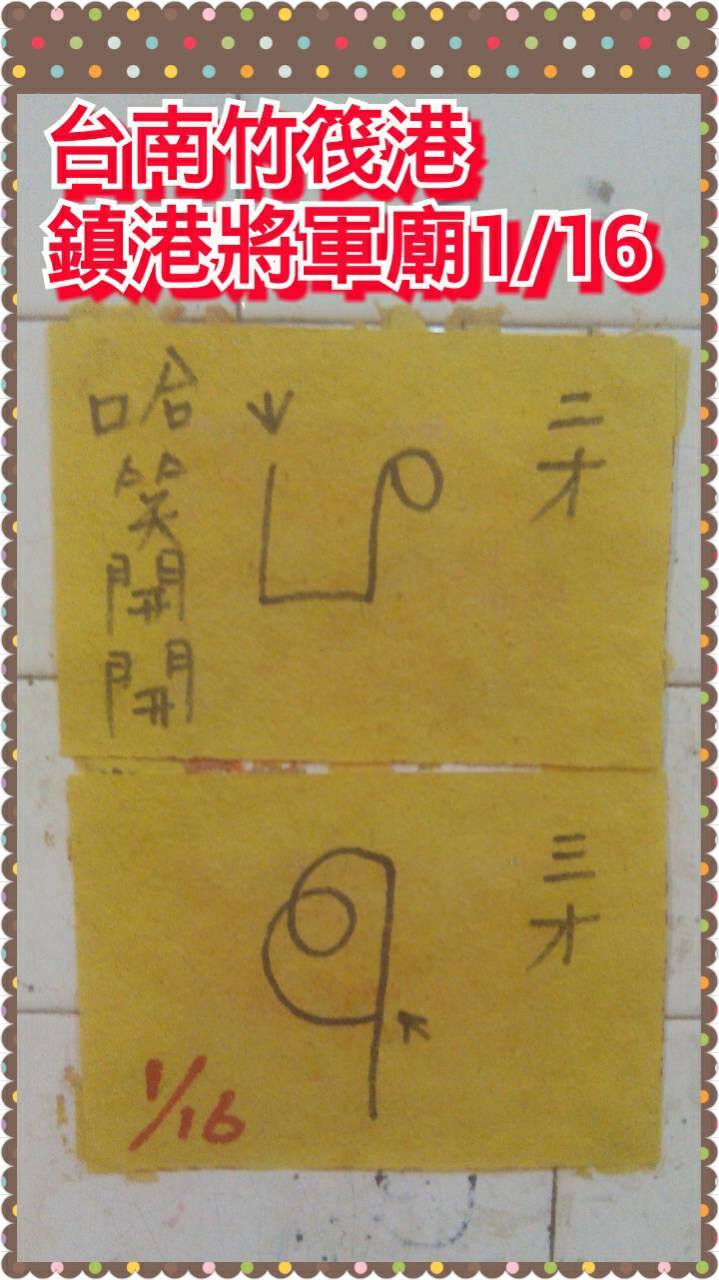 台南竹筏港
鎮港將軍廟1/16
二才
哈笑開開
三才
1/16